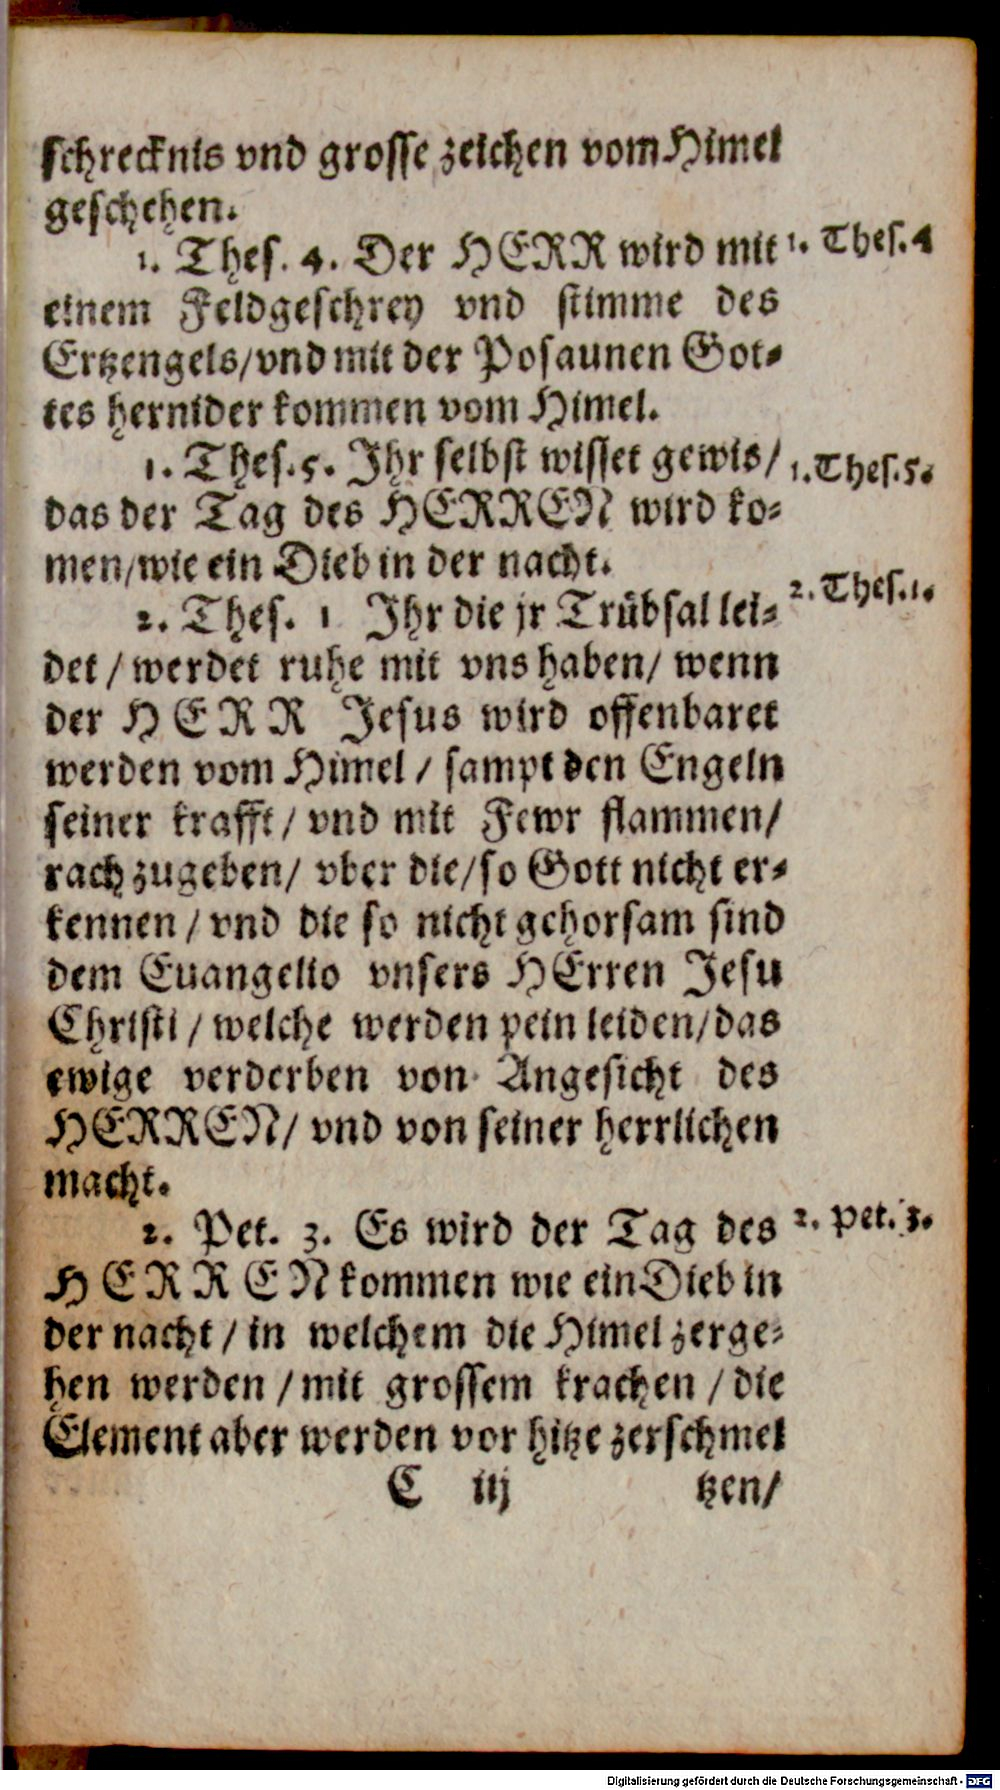 schrecknis vnd grosse zeichen vom Himel
geschehen.
1. Thes. 4. Der HERR wird mit
1. Thes. 4
einem Feldgeschrey vnd stimme des
Ertzengels/vnd mit der Posaunen Got-
tes hernider kommen vom Himel.
1. Thes. 5. Jhr selbst wisset gewis/
1. Thes. 5.
das der Tag des HERREN wird ko-
men/wie ein Dieb in der nacht.
2. Thes. 1 Jhr die jr Trübsal lei-
2. Thes. 1.
det / werdet ruhe mit vns haben/ wenn
der HERR Jesus wird offenbaret
werden vom Himel / sampt den Engeln
seiner krafft / vnd mit Fewr flammen/
rach zugeben/ vber die/so Gott nicht er-
kennen / vnd die so nicht gehorsam sind
dem Euangelio vnsers HErren Jesu
Christi / welche werden pein leiden/das
ewige verderben von Angesicht des
HERREN/ vnd von seiner herrlichen
macht.
2. Pet. 3. Es wird der Tag des
2. Pet. 3.
HERREN kommen wie ein Dieb in
der nacht / in welchem die Himel zerge-
hen werden / mit grossem krachen / die
Element aber werden vor hitze zerschmel
C iij tzen/
Digitalisierung gefördert durch die Deutsche Forschungsgemeinschaft - DFG